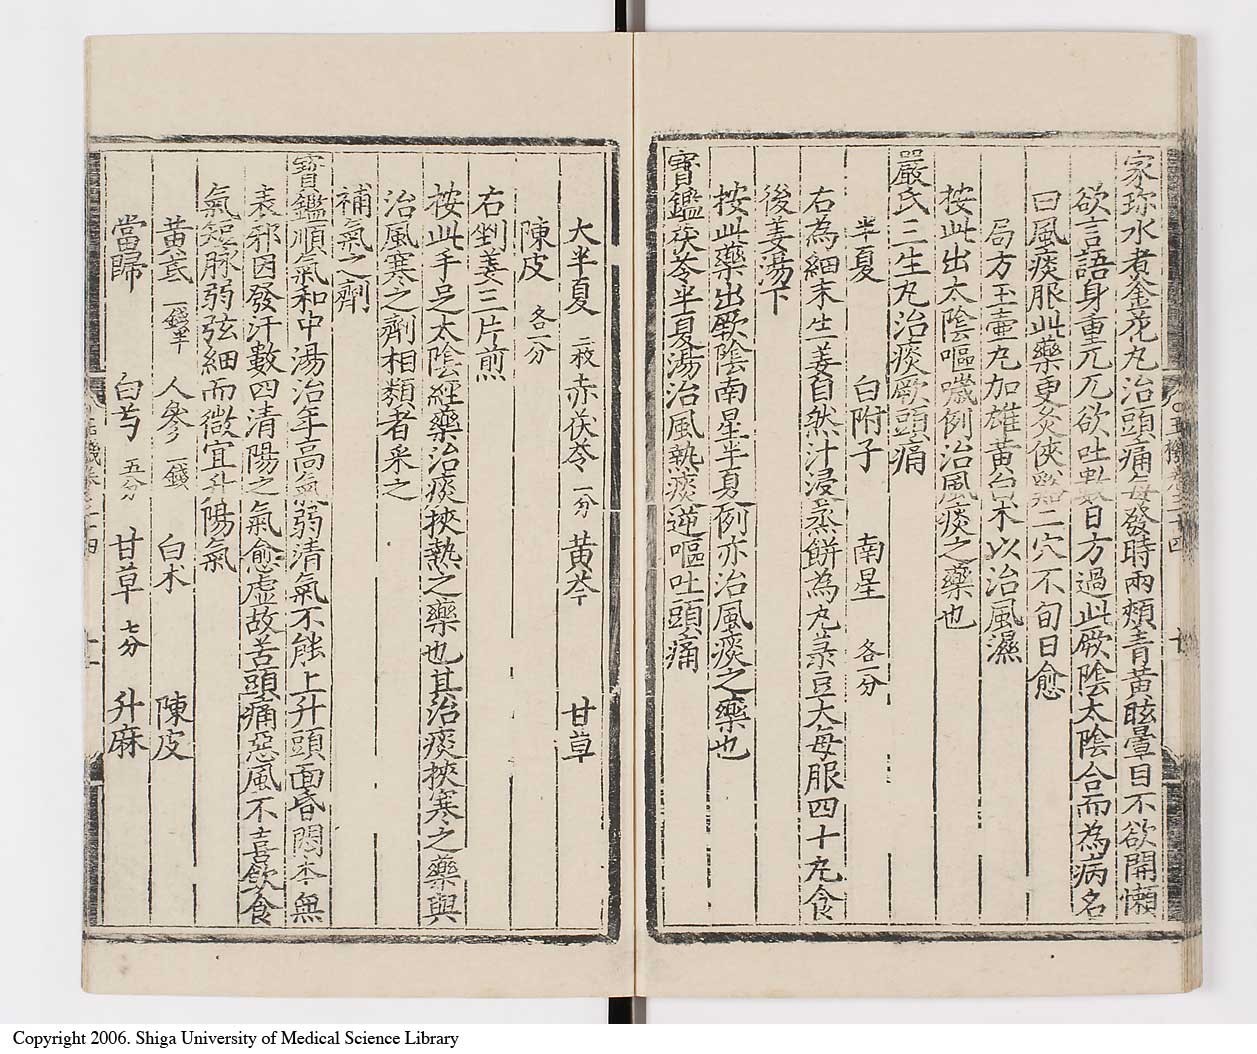 家珎水煮金花丸治頭痛每發時兩頰青黃眩暈目不欲開懶
欲言語身重兀兀欲吐數日方過此厥陰太陰合而為病名
曰風痰服此藥更灸俠谿二穴不旬日愈
局方玉壺丸加雄黃白术以治風濕
按此出太陰嘔噦例治風痰之藥也
嚴氏三生丸治痰厥頭痛
半夏 白附子 南星 各一分
右為細末生姜自然汁浸蒸餅為丸菉豆大每服四十丸食
後姜湯下
按此藥出厥陰南星半夏例亦治風痰之藥也
寶鑑茯苓半夏湯治風熱痰逆嘔吐頭痛
大半夏 二枚 赤茯苓 一分 黃芩 甘草
陳皮 各一分
右剉姜三片煎
按此手足太陰經藥治痰挾熱之藥也其治痰挾寒之藥與
治風寒之劑相類者釆之
補氣之劑
寶鑑順氣和中湯治年高氣弱清氣不能上升頭面昏悶本無
表邪因發汗數四清陽之氣愈虛故苦頭痛惡風不喜飲食
氣短脉弱弦細而微宜升陽氣
黃芪 一錢半 人參 一錢 白术 陳皮
當歸 白芍 五分 甘草 七分 升麻
Copyright 2006. Shiga University of Medical Science Library